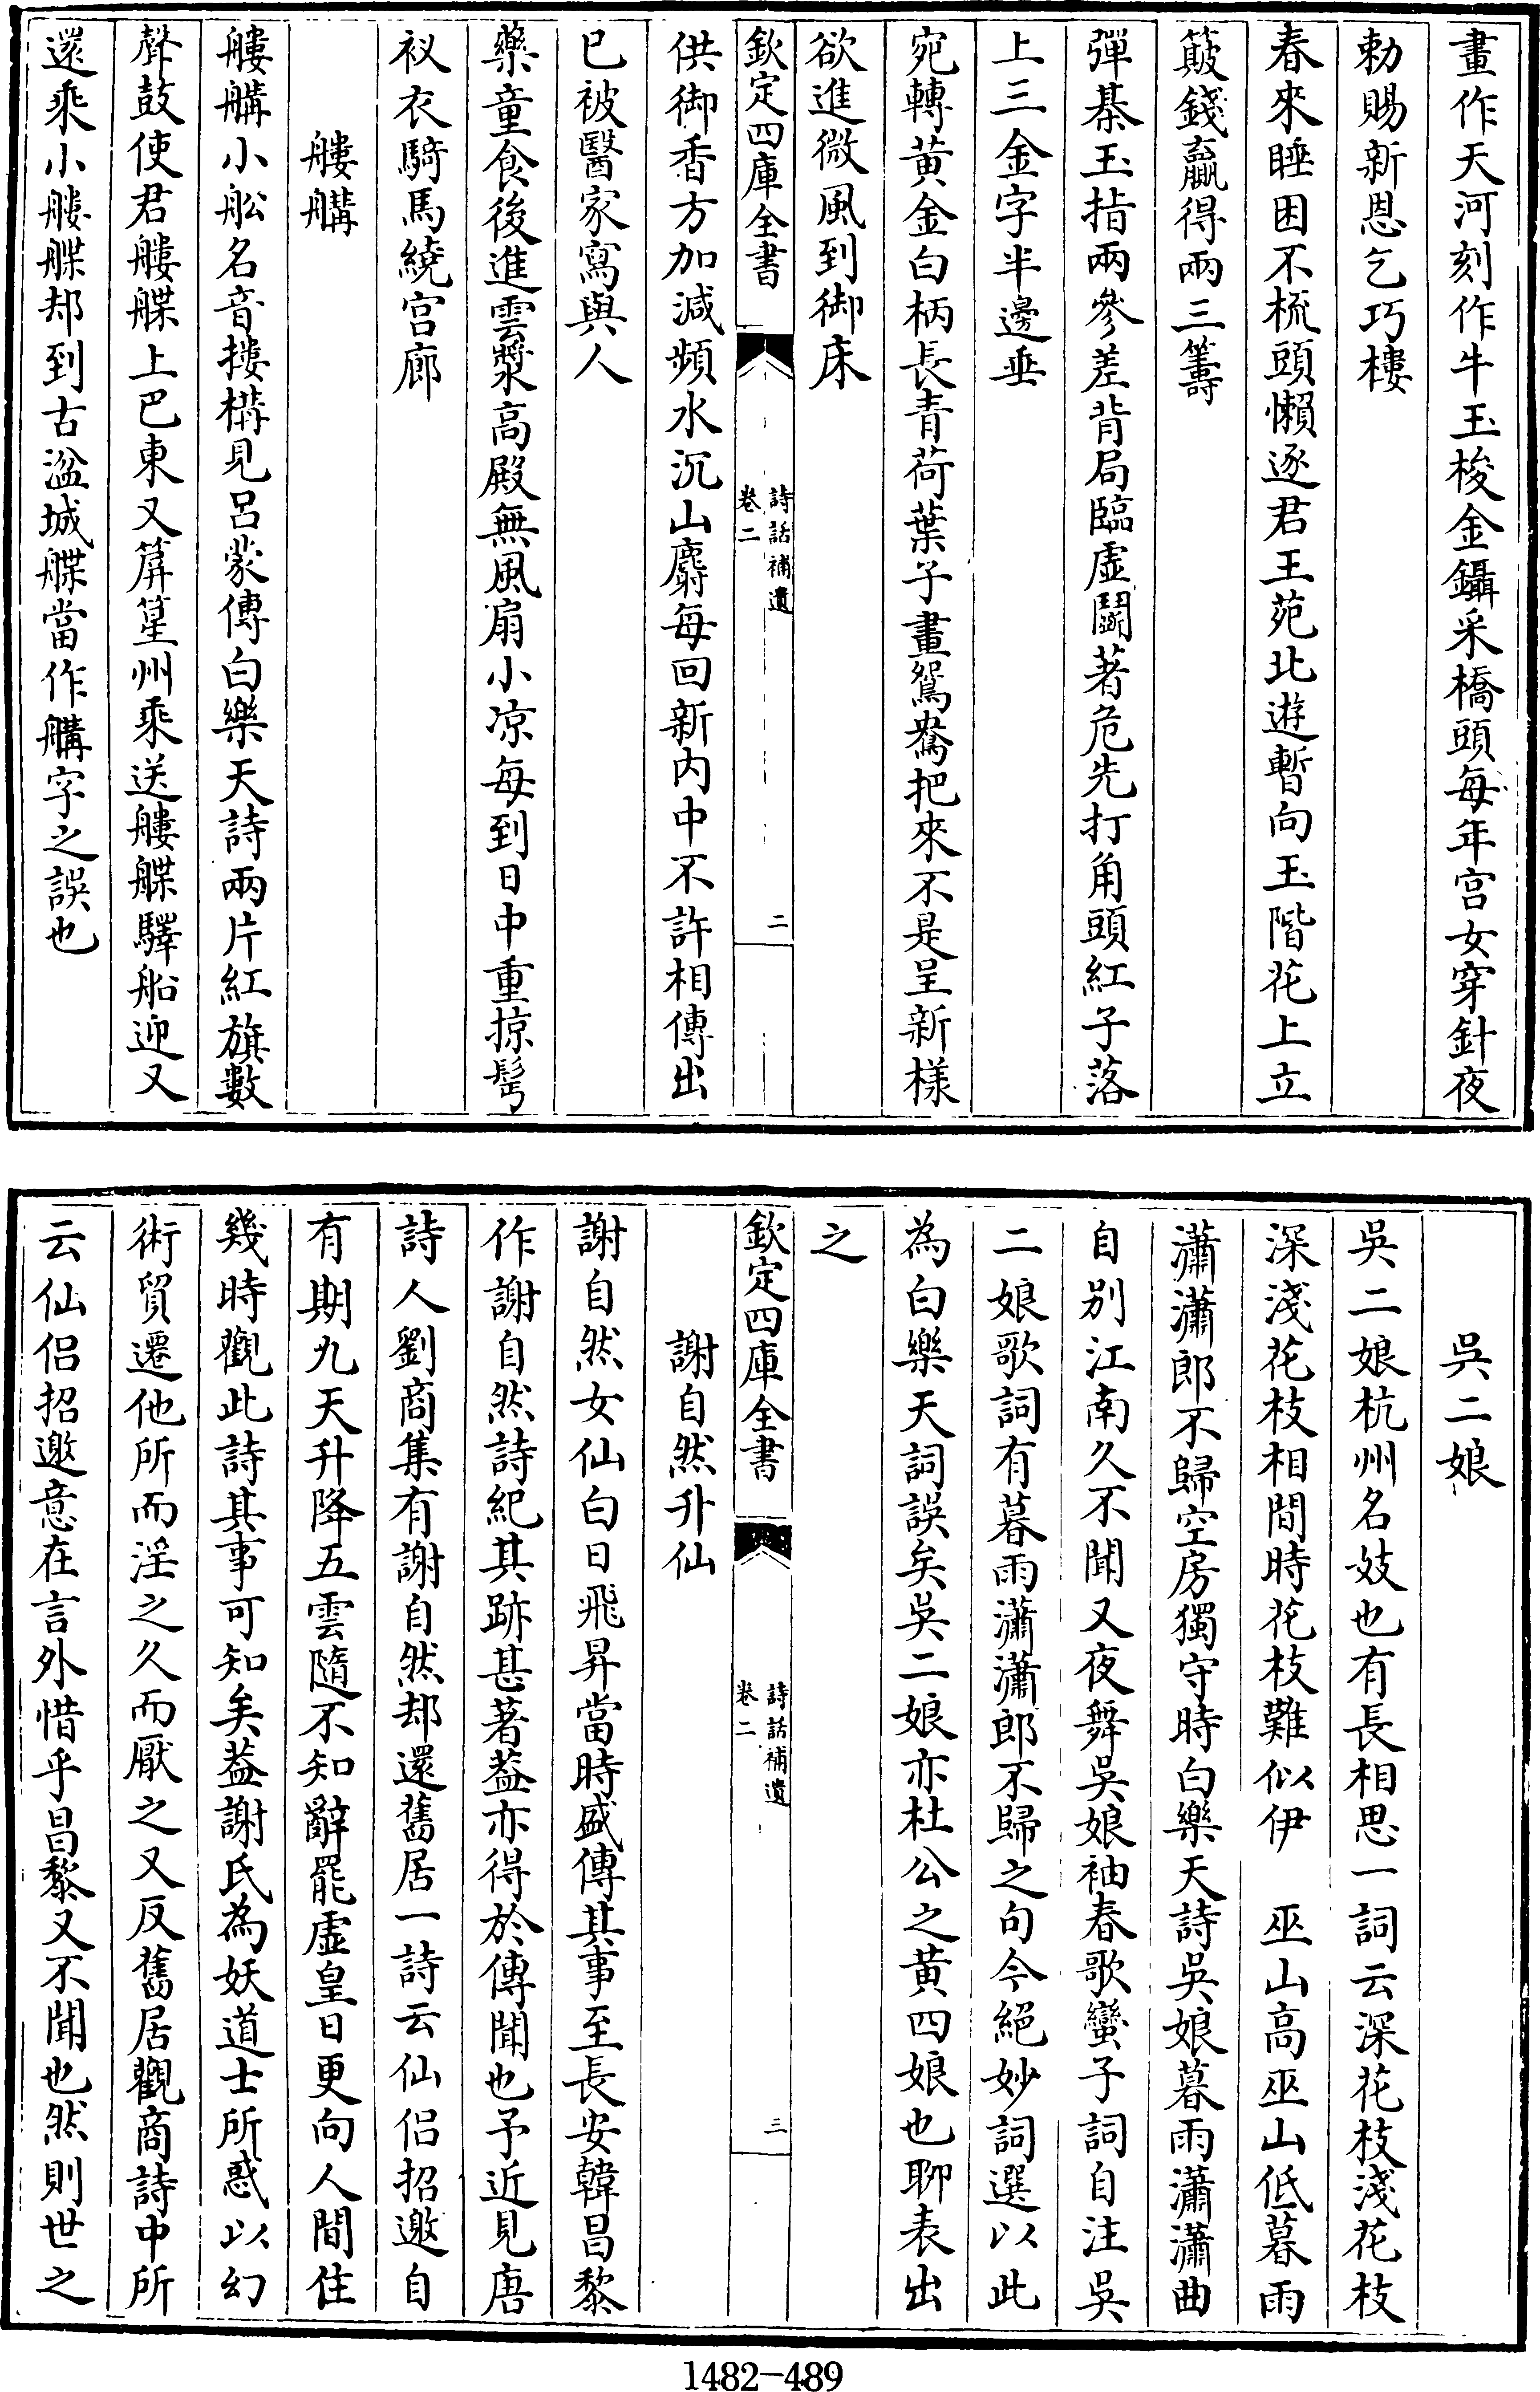 畫作天河刻作牛玉梭金鑷采橋頭每年宫女穿針夜
勅賜新恩乞巧樓
春來睡困不梳頭懶逐君王苑北遊暫向玉階花上立
簸錢贏得兩三籌
彈棊玉指兩參差背局臨虛鬬著危先打角頭紅子落
上三金字半邊垂
宛轉黄金白柄長青荷葉子畫鴛鴦把來不是呈新様
欲進微風到御床
欽定四庫全書
詩話補遺
卷二
二
供御香方加減頻水沉山麝每回新内中不許相傳出
已被醫家寫與人
藥童食後進雲漿高殿無風扇小凉每到日中重掠髩
衩衣騎馬繞宫廊
艛艩
艛艩小舩名音摟構見呂蒙傳白樂天詩兩片紅旗數
聲鼓使君艛艓上巴東又箳篂州乘送艛艓驛船迎又
還乘小艛艓却到古湓城艓當作艩字之誤也
吳二娘
吳二娘杭州名妓也有長相思一詞云深花枝淺花枝
深淺花枝相間時花枝難似伊 巫山高巫山低暮雨
瀟瀟郎不歸空房獨守時白樂天詩吳娘暮雨瀟瀟曲
自别江南久不聞又夜舞吳娘袖春歌蠻子詞自注吳
二娘歌詞有暮雨瀟瀟郎不歸之句今絕妙詞選以此
為白樂天詞誤矣吳二娘亦杜公之黄四娘也聊表出
之
欽定四庫全書
詩話補遺
卷二
三
謝自然升仙
謝自然女仙白日飛昇當時盛傳其事至長安韓昌黎
作謝自然詩紀其跡甚著葢亦得於傳聞也予近見唐
詩人劉商集有謝自然却還舊居一詩云仙侣招邀自
有期九天升降五雲隨不知辭罷虛皇日更向人間住
幾時觀此詩其事可知矣葢謝氏為妖道士所惑以幻
術貿遷他所而淫之久而厭之又反舊居觀商詩中所
云仙侣招邀意在言外惜乎昌黎又不聞也然則世之
1482-489